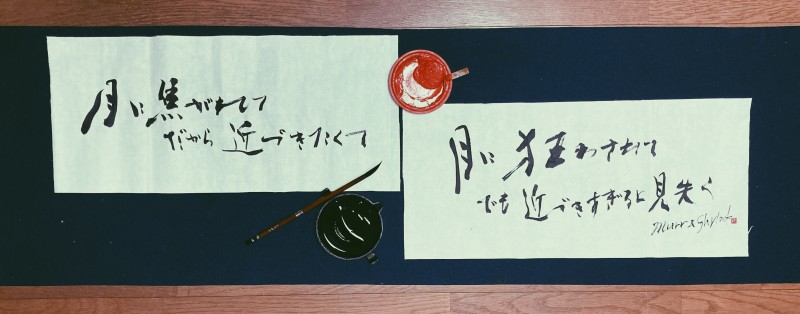 月に焦がれてて
だから近づきたくて
月に狂わされて
でも近づきすぎると見失う
Murr & Shylock